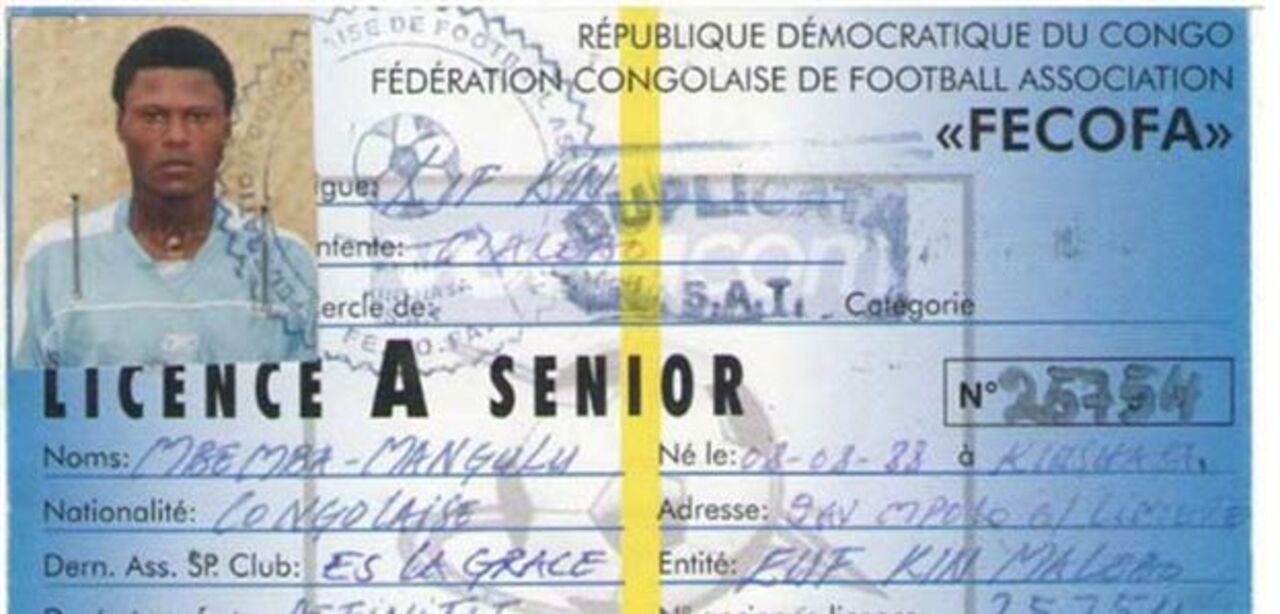 RÉPUBLIQUE DÉMOCRATIQUE DU CONGO
FÉDÉRATION CONGOLAISE DE FOOTBALL ASSOCIATION
«FECOFA»
gue: LIF KIN
DUPLICATA
ntente: MALEBO
S.A.T.
ercle de: Catégorie
LICENCE A SENIOR
N° 25754
Noms: MBEMBA-MANGULU Né le: 08-08-88 à KINSHASA
Nationalité: CONGOLAISE Adresse: 9 AV MPOLO
Dern. Ass. SP. Club: ES LA GRACE Entité: EUF KIN MALEBO
25754